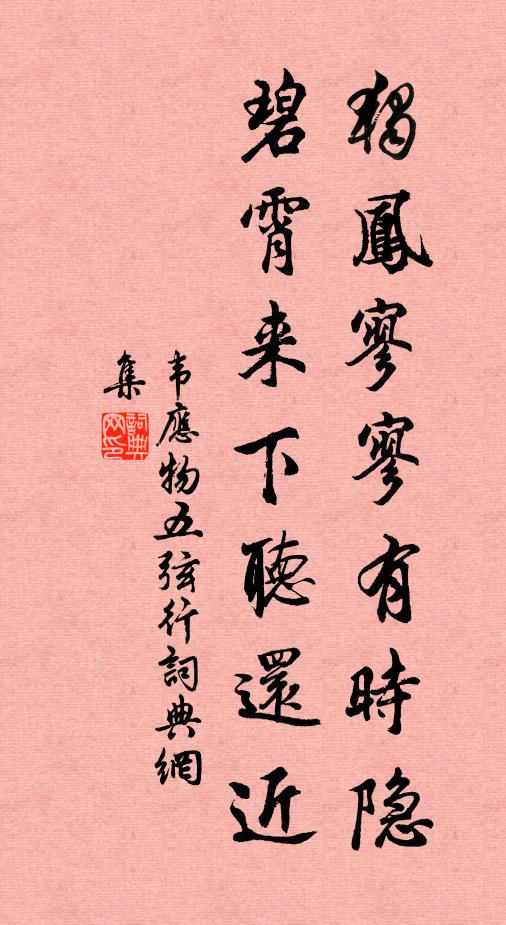 独鳳寥寥有時隐
碧霄来下聽還近
韦應物五弦行詞典網
集
詞典网印